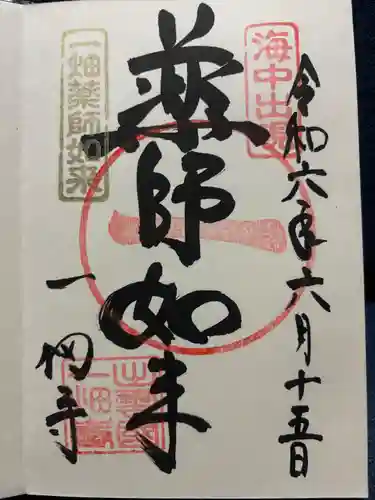 令和六年六月十五日
海中出現
薬師如来
一畑薬師如来
一畑寺
出雲國一畑寺